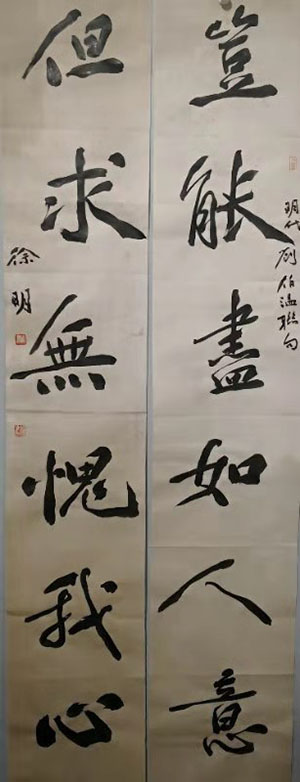 豈能盡如人意
明代劉伯溫聯句
但求無愧我心
徐明